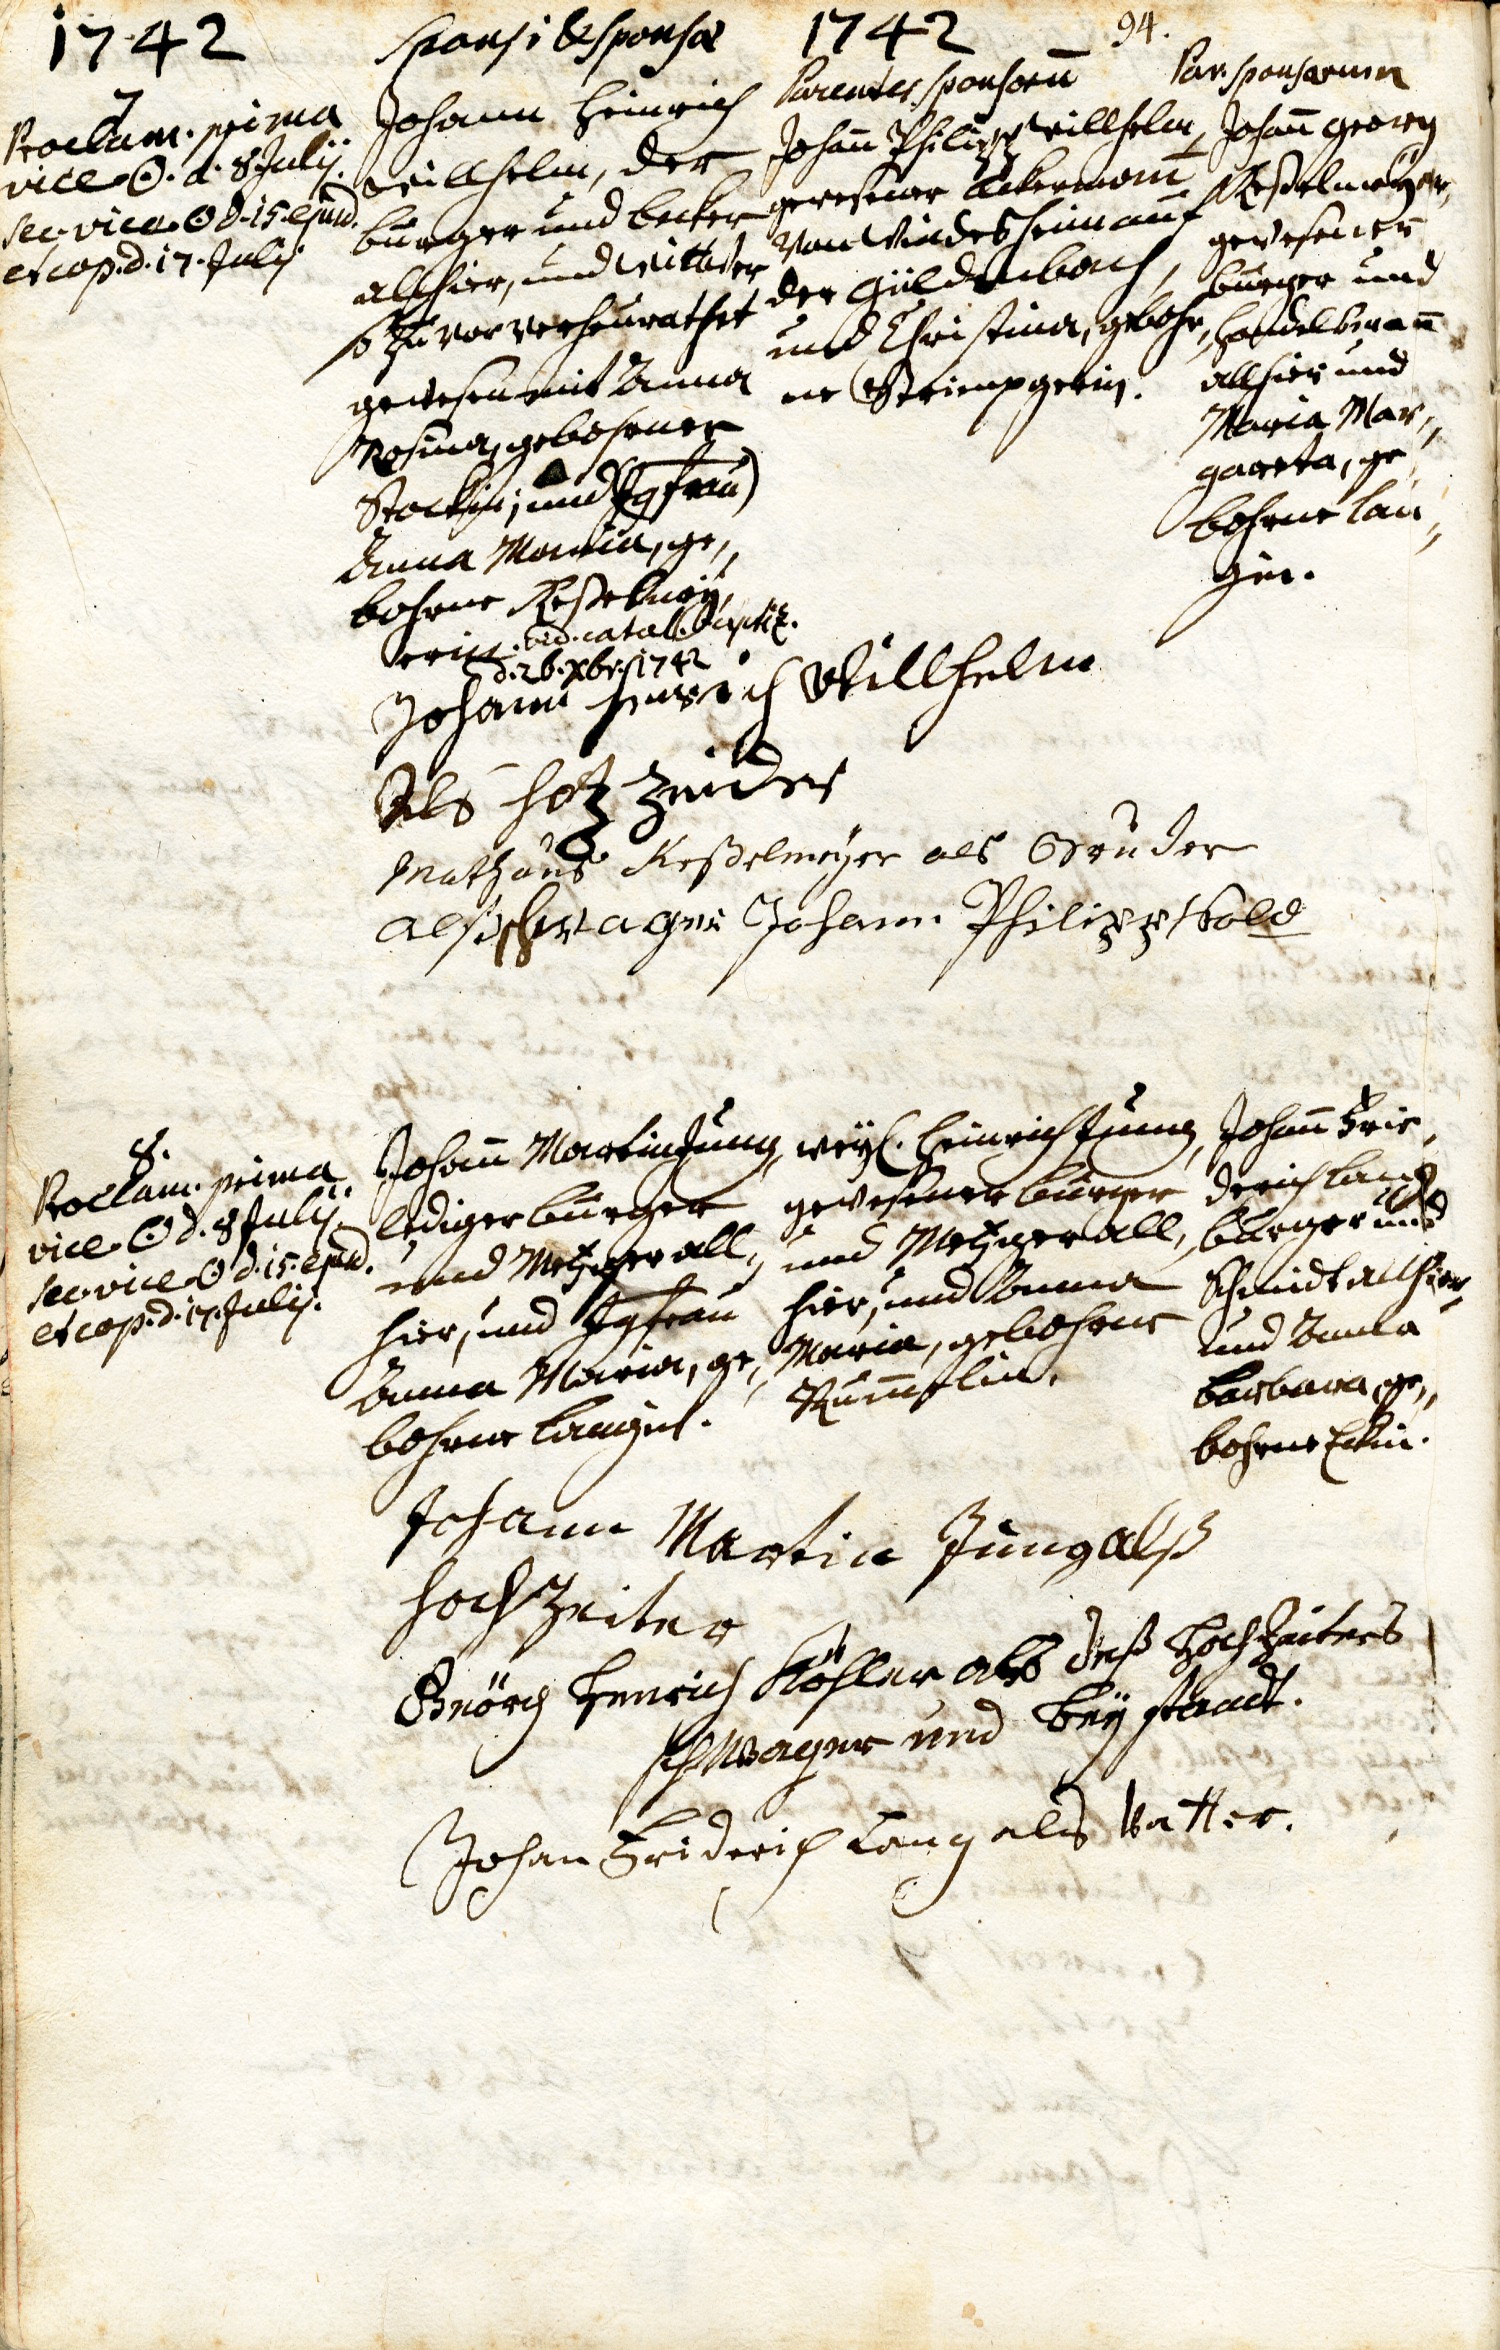 1742
Sponsi & Sponsæ
1742
94.
Parentes sponsorū
Par. sponsarum
7
Proclam. prima
vice ☉. d. 8 Julij.
sec. vice ☉ d. 15. ejusd.
et cop. d. 17. Julij
Johann Heinrich
Willhelm, der
burger und becker
allhier, und Wittwer
so zuvor verheurathet
gewesen mit Anna
Rosina, gebohrner
Stockin; und (Jgfrau)
Anna Maria, ge„
bohrne Keßelmey„
erin. vid. catal. baptiz.
d. 26. xbr. 1742
Johañ Philipp Willhelm,
gewesener Ackermann
von Windesheim auf
der Güldenbach,
und Christina, gebohr„
ne Strimpgerin.
Johañ Georg
Keßelmeyer,
gewesener
burger und
handelsmañ
allhier und
Maria Mar„
gareta, ge„
bohrne Lau„
gin.
Johann Henrich Willhelm
Als hozeider
Mathäus Keßelmeyer als Bruder
als schwager Johann Philipp Wold
8.
Proclam. prima
vice ☉ d. 8 Julij.
sec. vice ☉ d. 15. ejusd.
et cop. d. 17. Julij.
Johañ Martin Jung,
lediger burger
und Metzger all„
hier, und Jgfrau
Anna Maria, ge„
bohrne Langin.
weyl. Heinrich Jung,
gewesener burger
und Metzger all„
hier, und Anna
Maria, gebohrne
Kümmlin.
Johañ Frie„
derich Lang
burger und
Schmidt allhier,
und Anna
barbara, ge„
bohrne Eckin.
Johann Martin Jung alß
hochzeiter
Geörg Henrich Köhler als deß Hochzeiters
schwager und beystandt.
Johan Friderich Lang als Vatter.